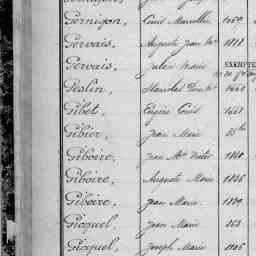 Gernigon, Louis Marcellin 1450
Gervais, Auguste Jean Mie 1811
Gervais, Julien Marie
EXEMPTÉ
Geslin, Stanislas 1460
Gibet, Eugène Louis 1451
Gibier, Jean Marie
Giboire, Jean Mie Victor 1840
Giboire, Auguste Marie 1836
Giboire, Jean Marie 1839
Gicquel, Jean Marie 363
Gicquel, Joseph Marie 1106